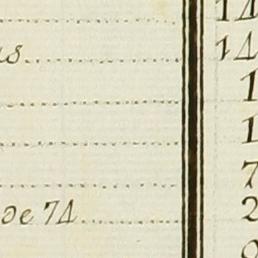 14
us 14
1
1
7
de 74 2